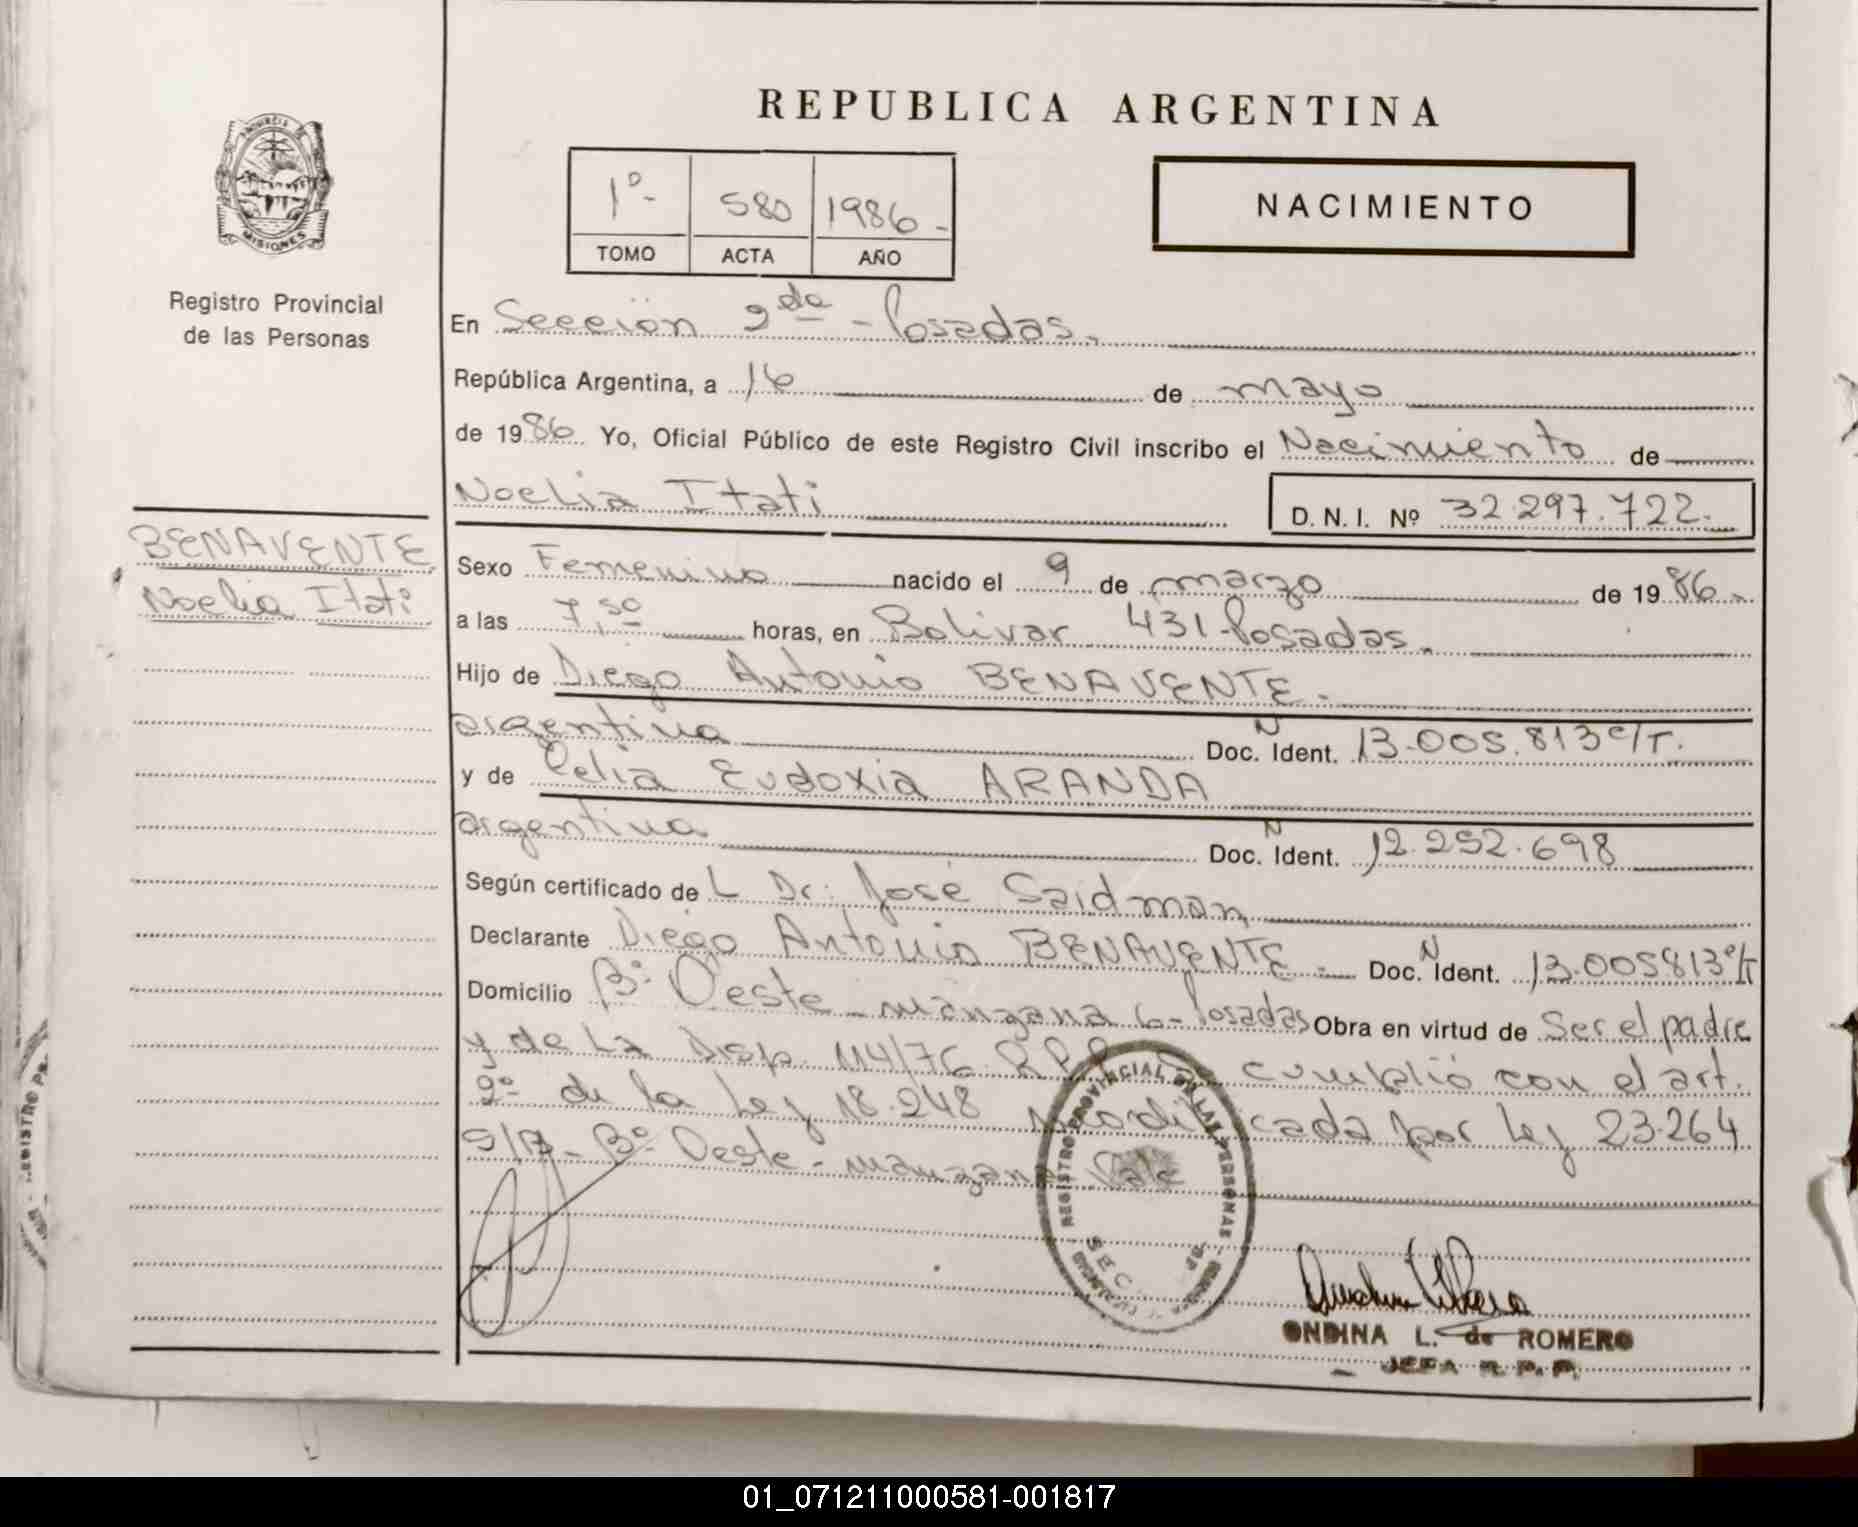 REPUBLICA ARGENTINA
PROVINCIA DE
MISIONES
Registro Provincial
de las Personas
1º- 580 1986-
TOMO ACTA AÑO
NACIMIENTO
En Sección 2da - Posadas.
República Argentina, a 16 de mayo
de 1986 Yo, Oficial Público de este Registro Civil inscribo el Nacimiento de
Noelia Itati D. N. I. Nº 32.297.722.
BENAVENTE
Noelia Itati
Sexo Femenino nacido el 9 de marzo de 1986.
a las 7,50 horas, en Bolivar 431-Posadas.
Hijo de Diego Antonio BENAVENTE.
argentina Doc. N Ident. 13.005.813 c/T.
y de Celia Eudoxia ARANDA
argentina Doc. N Ident. 12.252.698
Según certificado de L Dr: José Saidman
Declarante Diego Antonio BENAVENTE. Doc. N Ident. 13.005813 c/T
Domicilio Bº Oeste - manzana 6- Posadas Obra en virtud de Ser el padre
y de La Disp. 114/76 R.P.P. cumplió con el art.
2º de la Ley 18.248 modificada por Ley 23.264
S/B - Bº Oeste - manzana Vale
REGISTRO PROVINCIAL DE LAS PERSONAS
SEC.
ONDINA L. de ROMERO
JEFA R. P. P.
01_071211000581-001817